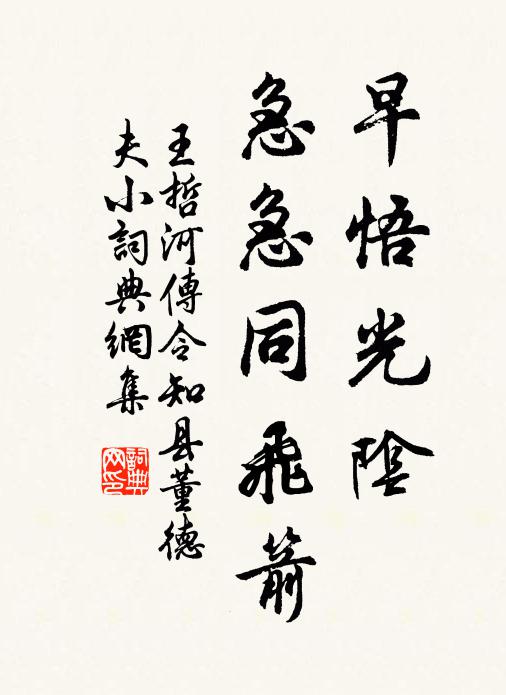 早悟光陰
急急同飛箭
王哲河傳令知县董德
夫小詞典網集
詞典
网印